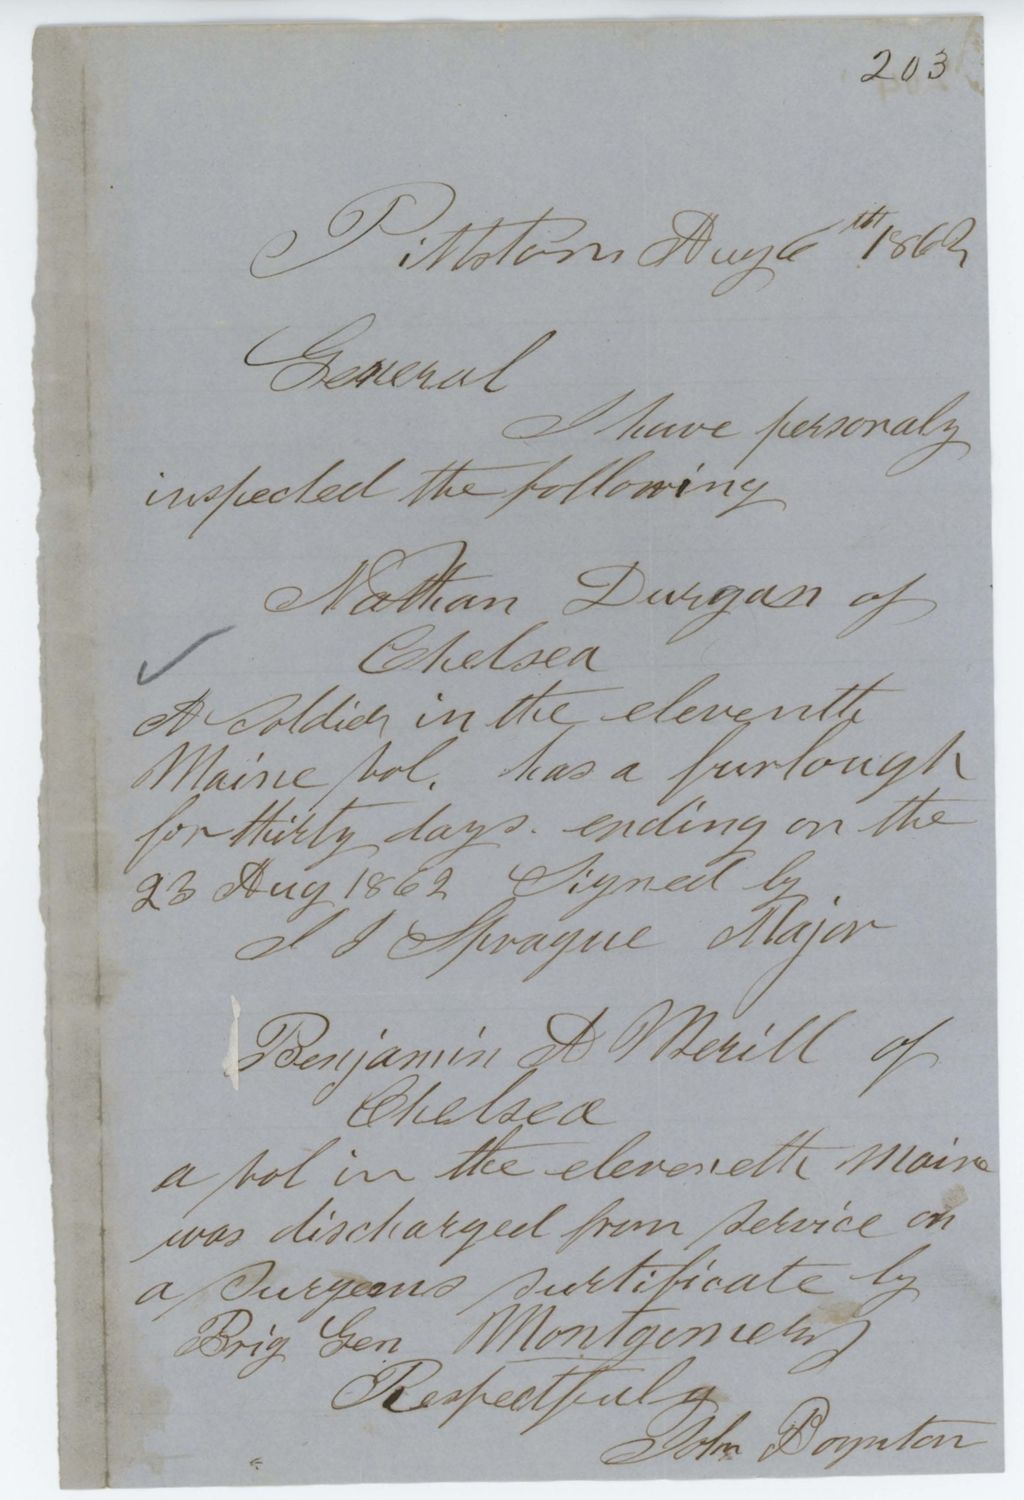 203
Pittston Aug 6th 1862
General
I have personaly
inspected the following
Nathan Durgan of
Chelsea
A Soldier in the eleventh
Maine Vol. has a furlough
for thirty days. ending on the
23 Aug 1862 Signed by
I I Sprague Major
Benjamin A Merill of
Chelsea
a vol in the eleventh Maine
was discharged from service on
a Surgeons surtificate by
Brig Gen Montgomery
Respectfuly
John Boynton